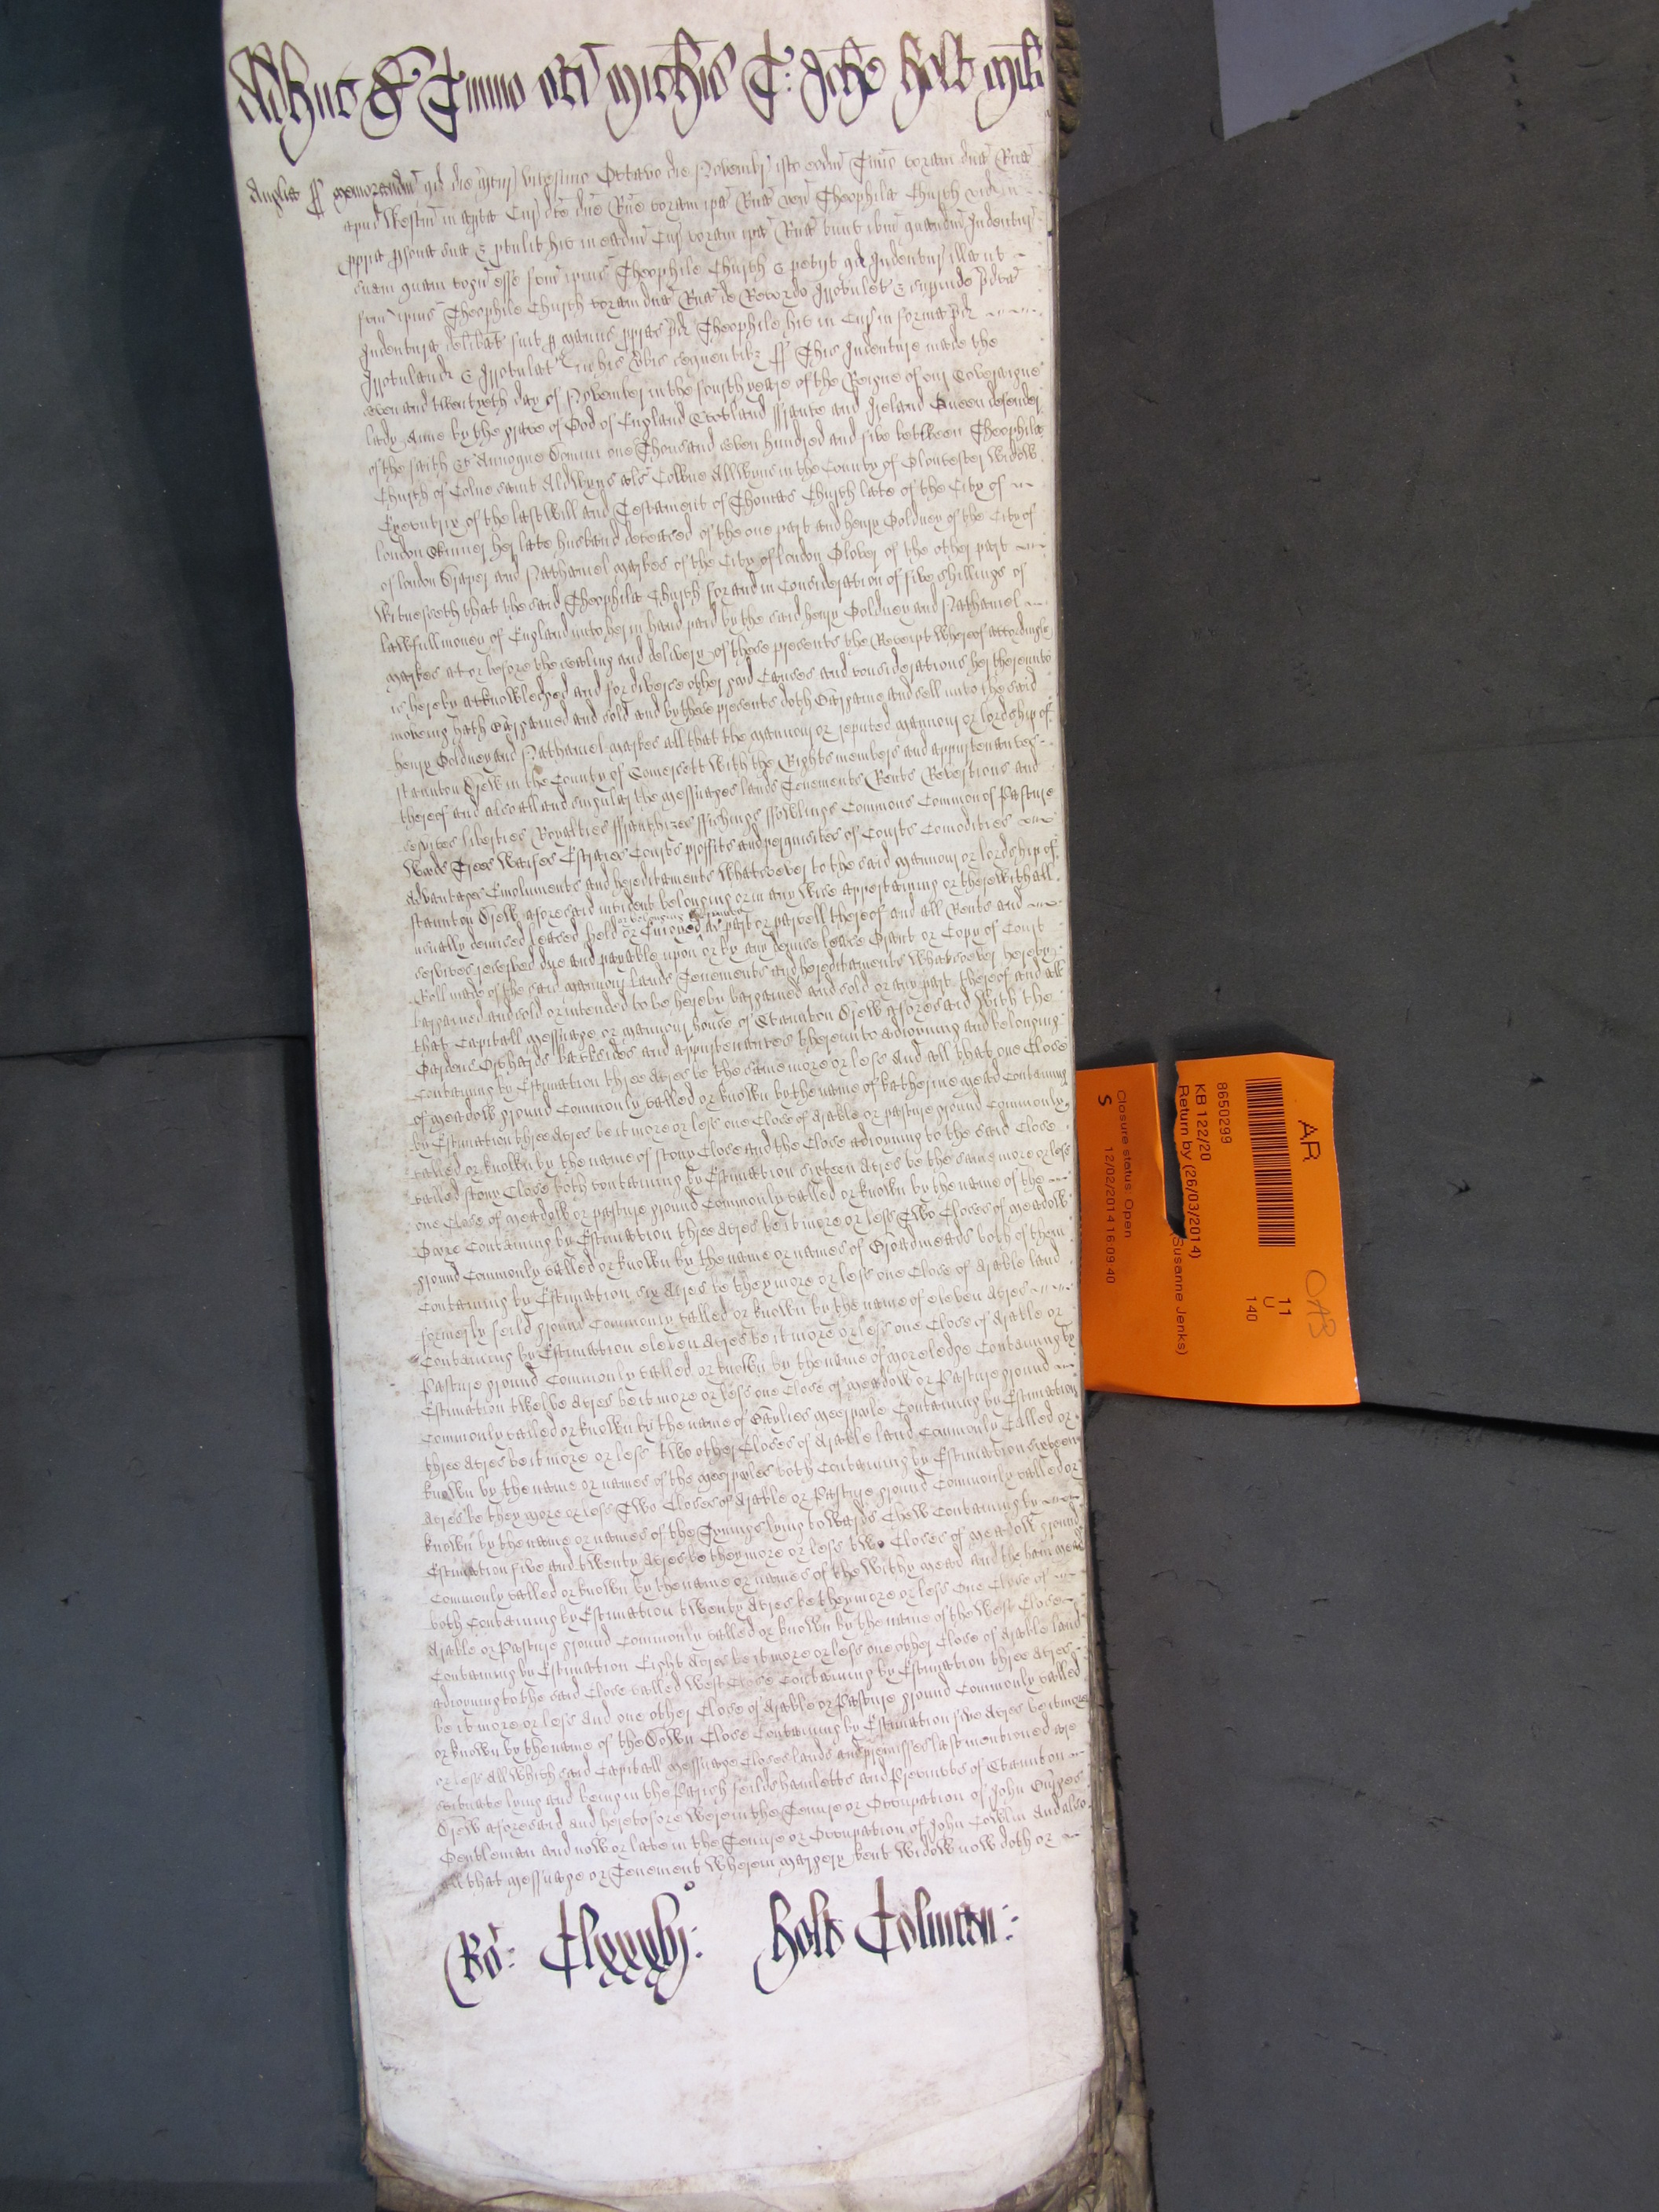 Adhuc de Termino sci Mich'is T: Joh'e Holt Milit
Anglia ss Memorandum qd die scilt vicesimo Octavo die Novembr isto eodm Termio coram dna Rna
apud Westm in aperta Cur dce dne Rne coram ipa Rna ven Theophila Church vid in
ppria psona sua & ptulit hic in eadm Cur coram ipa Rna tunc ibm quandm Indentur
suam quam cogn esse fcm ipius Theophile Church & petijt qd Indentur illa ut
fcm ipius Theophile Church coram dna Rna de Recordo Irrotulet & superinde pdca
Indentura delibat fuit p manus pprias pdce Theophile hic in Cur in forma pdca
Irrotuland & Irrotulat in his verbis sequentibz ss This Indenture made the
seven and twentyeth day of November in the fourth yeare of the Reigne of our Soveraigne
lady Anne by the grace of God of England Scotland ffrance and Ireland Queen defender
of the faith &c Annoque Domini one Thousand seven hundred and five between Theophila
Church of Colne saint Aldwyns als Colne Allwyns in the County of Gloucester widdow
Executrix of the last will and Testament of Thomas Church late of the City of
london Skinner her late husband deceased of the one part and Henry Goldney of the City of
of london Draper and Nathaniel Markes of the City of london Glover of the other part
Witnesseth that the said Theophila Church for and in Consideration of five shillings of
lawfull money of England unto her in hand paid by the said Henry Goldney and Nathaniel
Markes at or before the sealing and delivery of these presents the Receipt whereof accordingly
is hereby acknowledged and for diverse other good Causes and considerations her thereunto
moveing hath Bargained and sold and by these presents doth Bargaine and sell unto the said
Henry Goldney and Nathaniel Markes all that the Mannour or reputed Mannour or lordship of
Staunton Drew in the County of Somersett with the Rights members and appurtenances
thereof and also all and singular the Messuages lands Tenements Rents Revertions and
services liberties Royalties ffranchizes ffishings ffowlings Commons Common of Pasture
Woods Trees Waifes Estraies Courts proffits and perquisites of Courts Comodities
advantages Emoluments and hereditaments whatsoever to the said Mannour or lordship of
Staunton Drew aforesaid incident belonging or in any wise appertaining or therewithall
or belonging
usually demised leased held or Enjoyed as part or parcell thereof and all Rents and
services reserved due and payable upon or by any demise lease Grant or Copy of Court
Roll made of the said Mannour lands Tenements and hereditaments whatsoever hereby
bargained and sold or intended to be hereby bargained and sold or any part thereof and all
that Capitall Messuage or Mannour house of Staunton Drew aforesaid with the
Gardens Orchards backsides and appurtenances thereunto adioyning and belonging
Containing by Estimation three acres be the same more or less and all that one Close
of Meadow ground Commonly called or known by the name of Katherine Mead Containing
by Estimation three acres be it more or less one Close of Arable or pasture ground Commonly
called or known by the name of Stony Close and the Close adioyning to the said Close
called Stony Close both containing by Estimation sixteen acres be the same more or less
one Close of Meadow or pasture ground Commonly called or known by the name of the
Gore Containing by Estimation three acres be it more or less Two Closes of Meadow
ground Commonly called or known by the name or names of Broadmeads both of them
Containing by Estimation six acres be they more or less one Close of Arable land
formerly feild ground Commonly called or known by the name of eleven acres
Containing by Estimation eleven acres be it more or less one Close of Arable or
Pasture ground Commonly called or known by the name of Moreledge Containing by
Estimation twelve acres be it more or less one Close of Meadow or Pasture ground
Commonly called or known by the name of Baylies Meerpoole Containing by Estimation
three acres be it more or less two other Closes of Arable land Commonly Called or
known by the name or names of the Meerpooles both Containing by Estimation sixteen
acres be they more or less Two Closes of Arable or Pasture ground Commonly called or
known by the name or names of the Tynings lying towards Chew Containing by
Estimation five and twenty acres be they more or less two Closes of Meadow ground
Commonly called or known by the name or names of the Withy Mead and the ham Mead
both Containing by Estimation twenty acres be they more or less One Close of
Arable or Pasture ground Commonly called or known by the name of the West Close
Containing by Estimation Eight acres be it more or less one other Close of Arable land
adioyning to the said Close called West Close Containing by Estimation three acres
be it more or less and one other Close of Arable or Pasture ground Commonly called
or known by the name of the Down Close Containing by Estimation five acres be it more
or less All which said Capitall Messuage Closes lands and premisses last mentioned are
situate lying and being in the Parish feilds hamletts and Precincts of Staunton
Drew aforesaid and heretofore were in the Tenure or Occupation of John
Gentleman and now or late in the Tenure or Occupation of John Cowlin And also
all that Messuage or Tenement wherein Margery Kent Widow now doth or
Ro: Clxxxvij: Holt Colman:
AR
8650299
KB 122/20
Return by (26/03/2014)
(Susanne Jenks)
11
U
140
OAB
Closure status: Open
S
12/02/2014 16:09:40